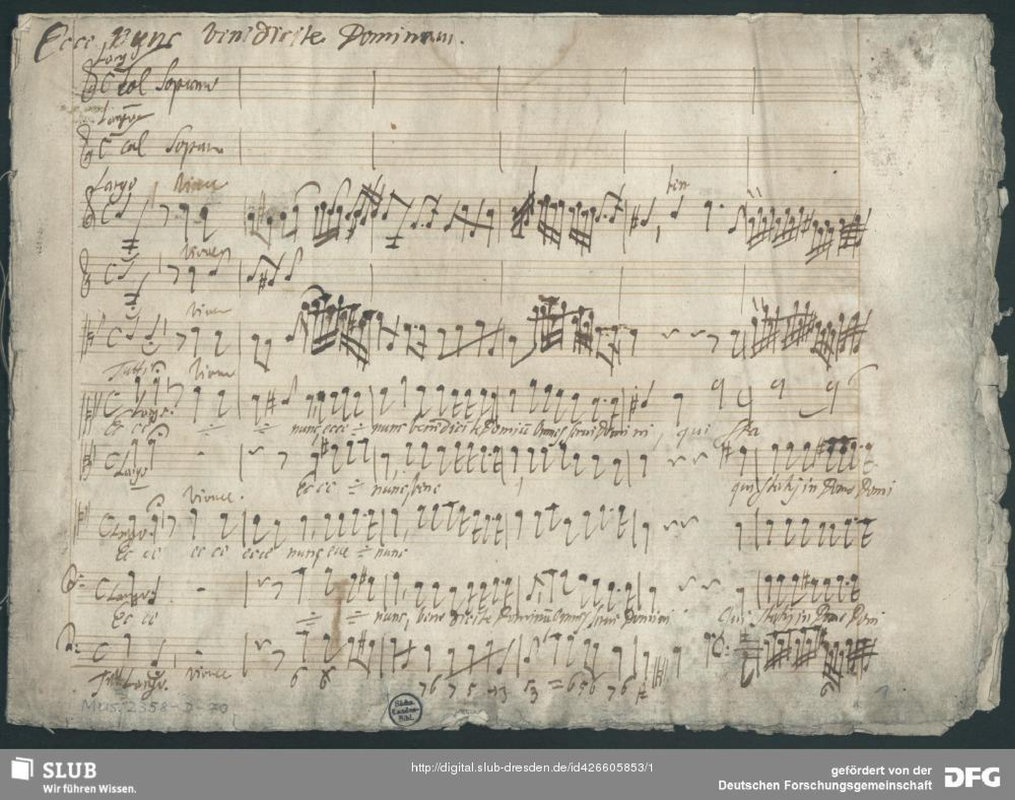 Ecce nunc benedicite Dominum.
Largo
col Soprano
Largo
col Soprano
Largo Vivace
Vivace
Vivace
Tutti Vivace
Largo.
Ec ce nunc, ecce nunc benedicite Dominū omnes servi Domini, qui sta
Largo
Ecce nunc, bene qui statis in Domo Domi
Vivace.
Largo.
Ec ce ec ce ecce nunc ecce nunc
Largo
Ec ce nunc, bene dicite Dominū omnes servi Domini Qui statis in Domo Domi
Largo. Vivace
6 6
Mus. 2358-D-70
Sächs. Landes-Bibl.
1
SLUB
Wir führen Wissen.
http://digital.slub-dresden.de/id426605853/1
gefördert von der
Deutschen Forschungsgemeinschaft
DFG